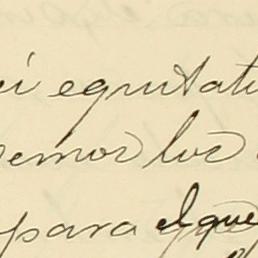 equitati
emos los
para el que